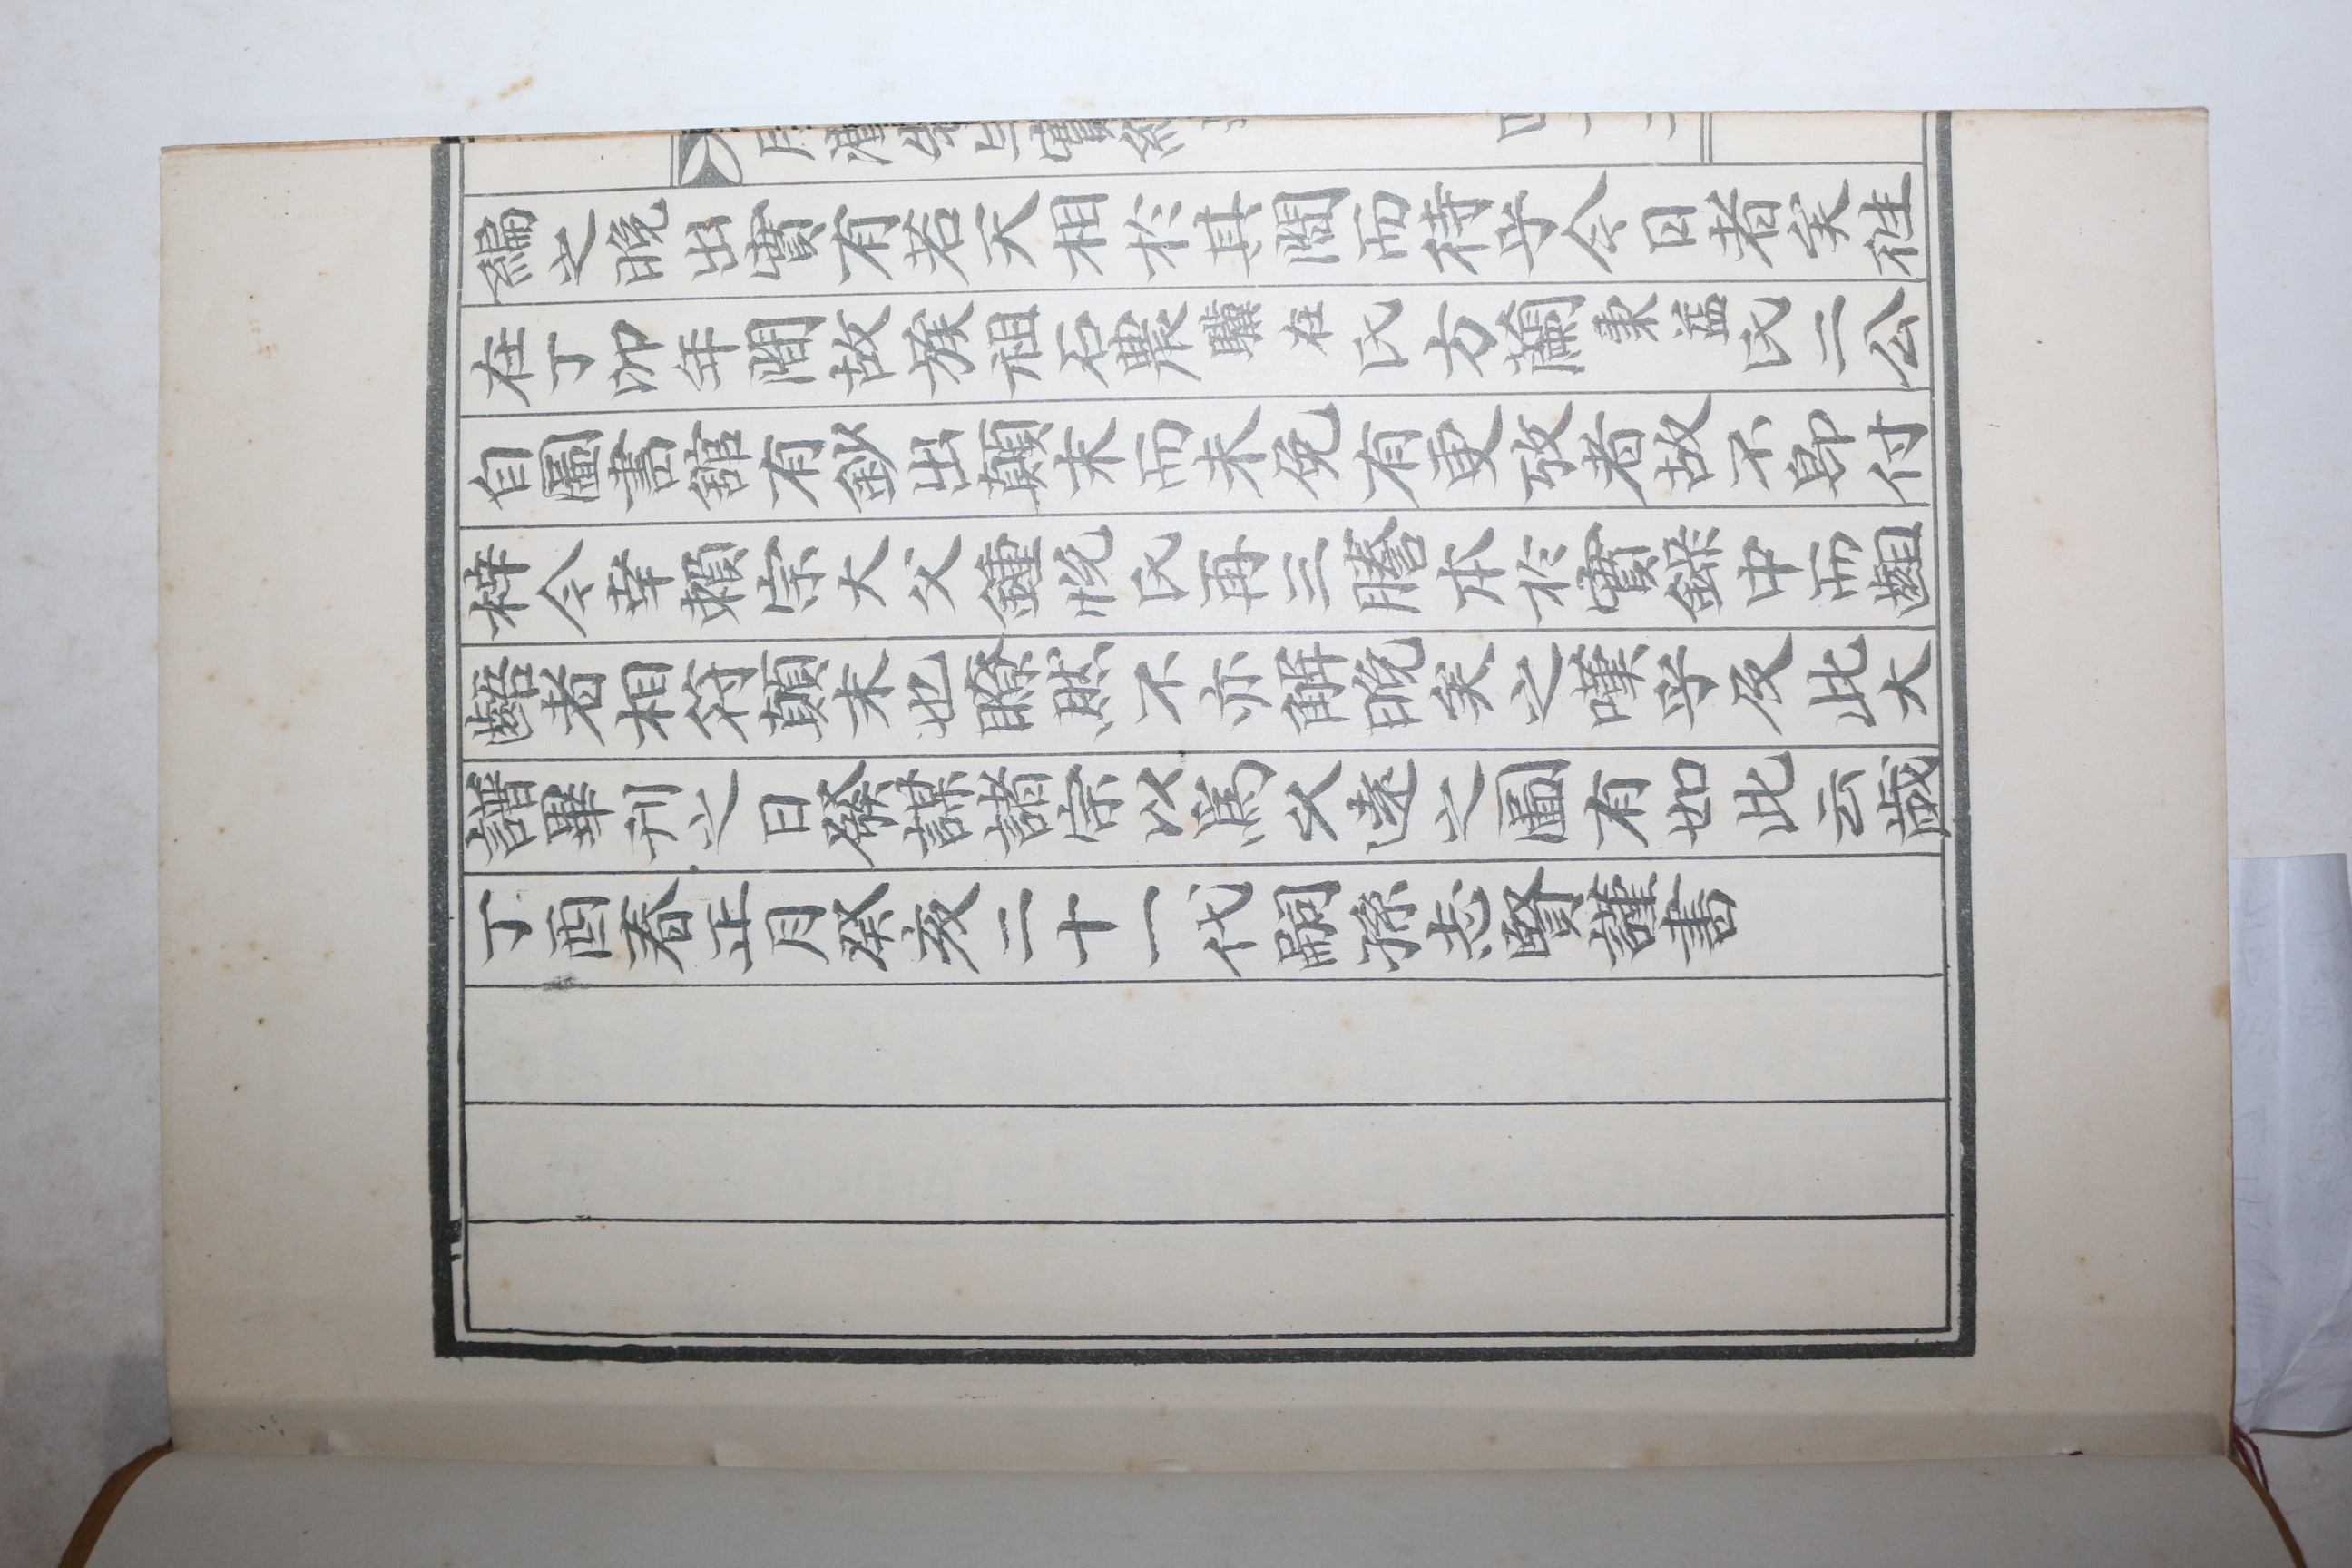 編之晚出實有若天相於其間而待乎今日者矣徃
在丁卯年間故族祖石農驥在氏方蘭秉益氏二公
自圖書舘有鈔出顛末而未免有更攷者故不卽付
梓今幸賴宗大父鍾悅氏再三謄本於實錄中而齟
齬者相符顛末也瞭然不亦解晚矣之嘆乎及此大
譜畢刊之日發謀諸宗以爲久遠之圖有如此云歲
丁酉春正月癸亥二十一代嗣孫志賢謹書